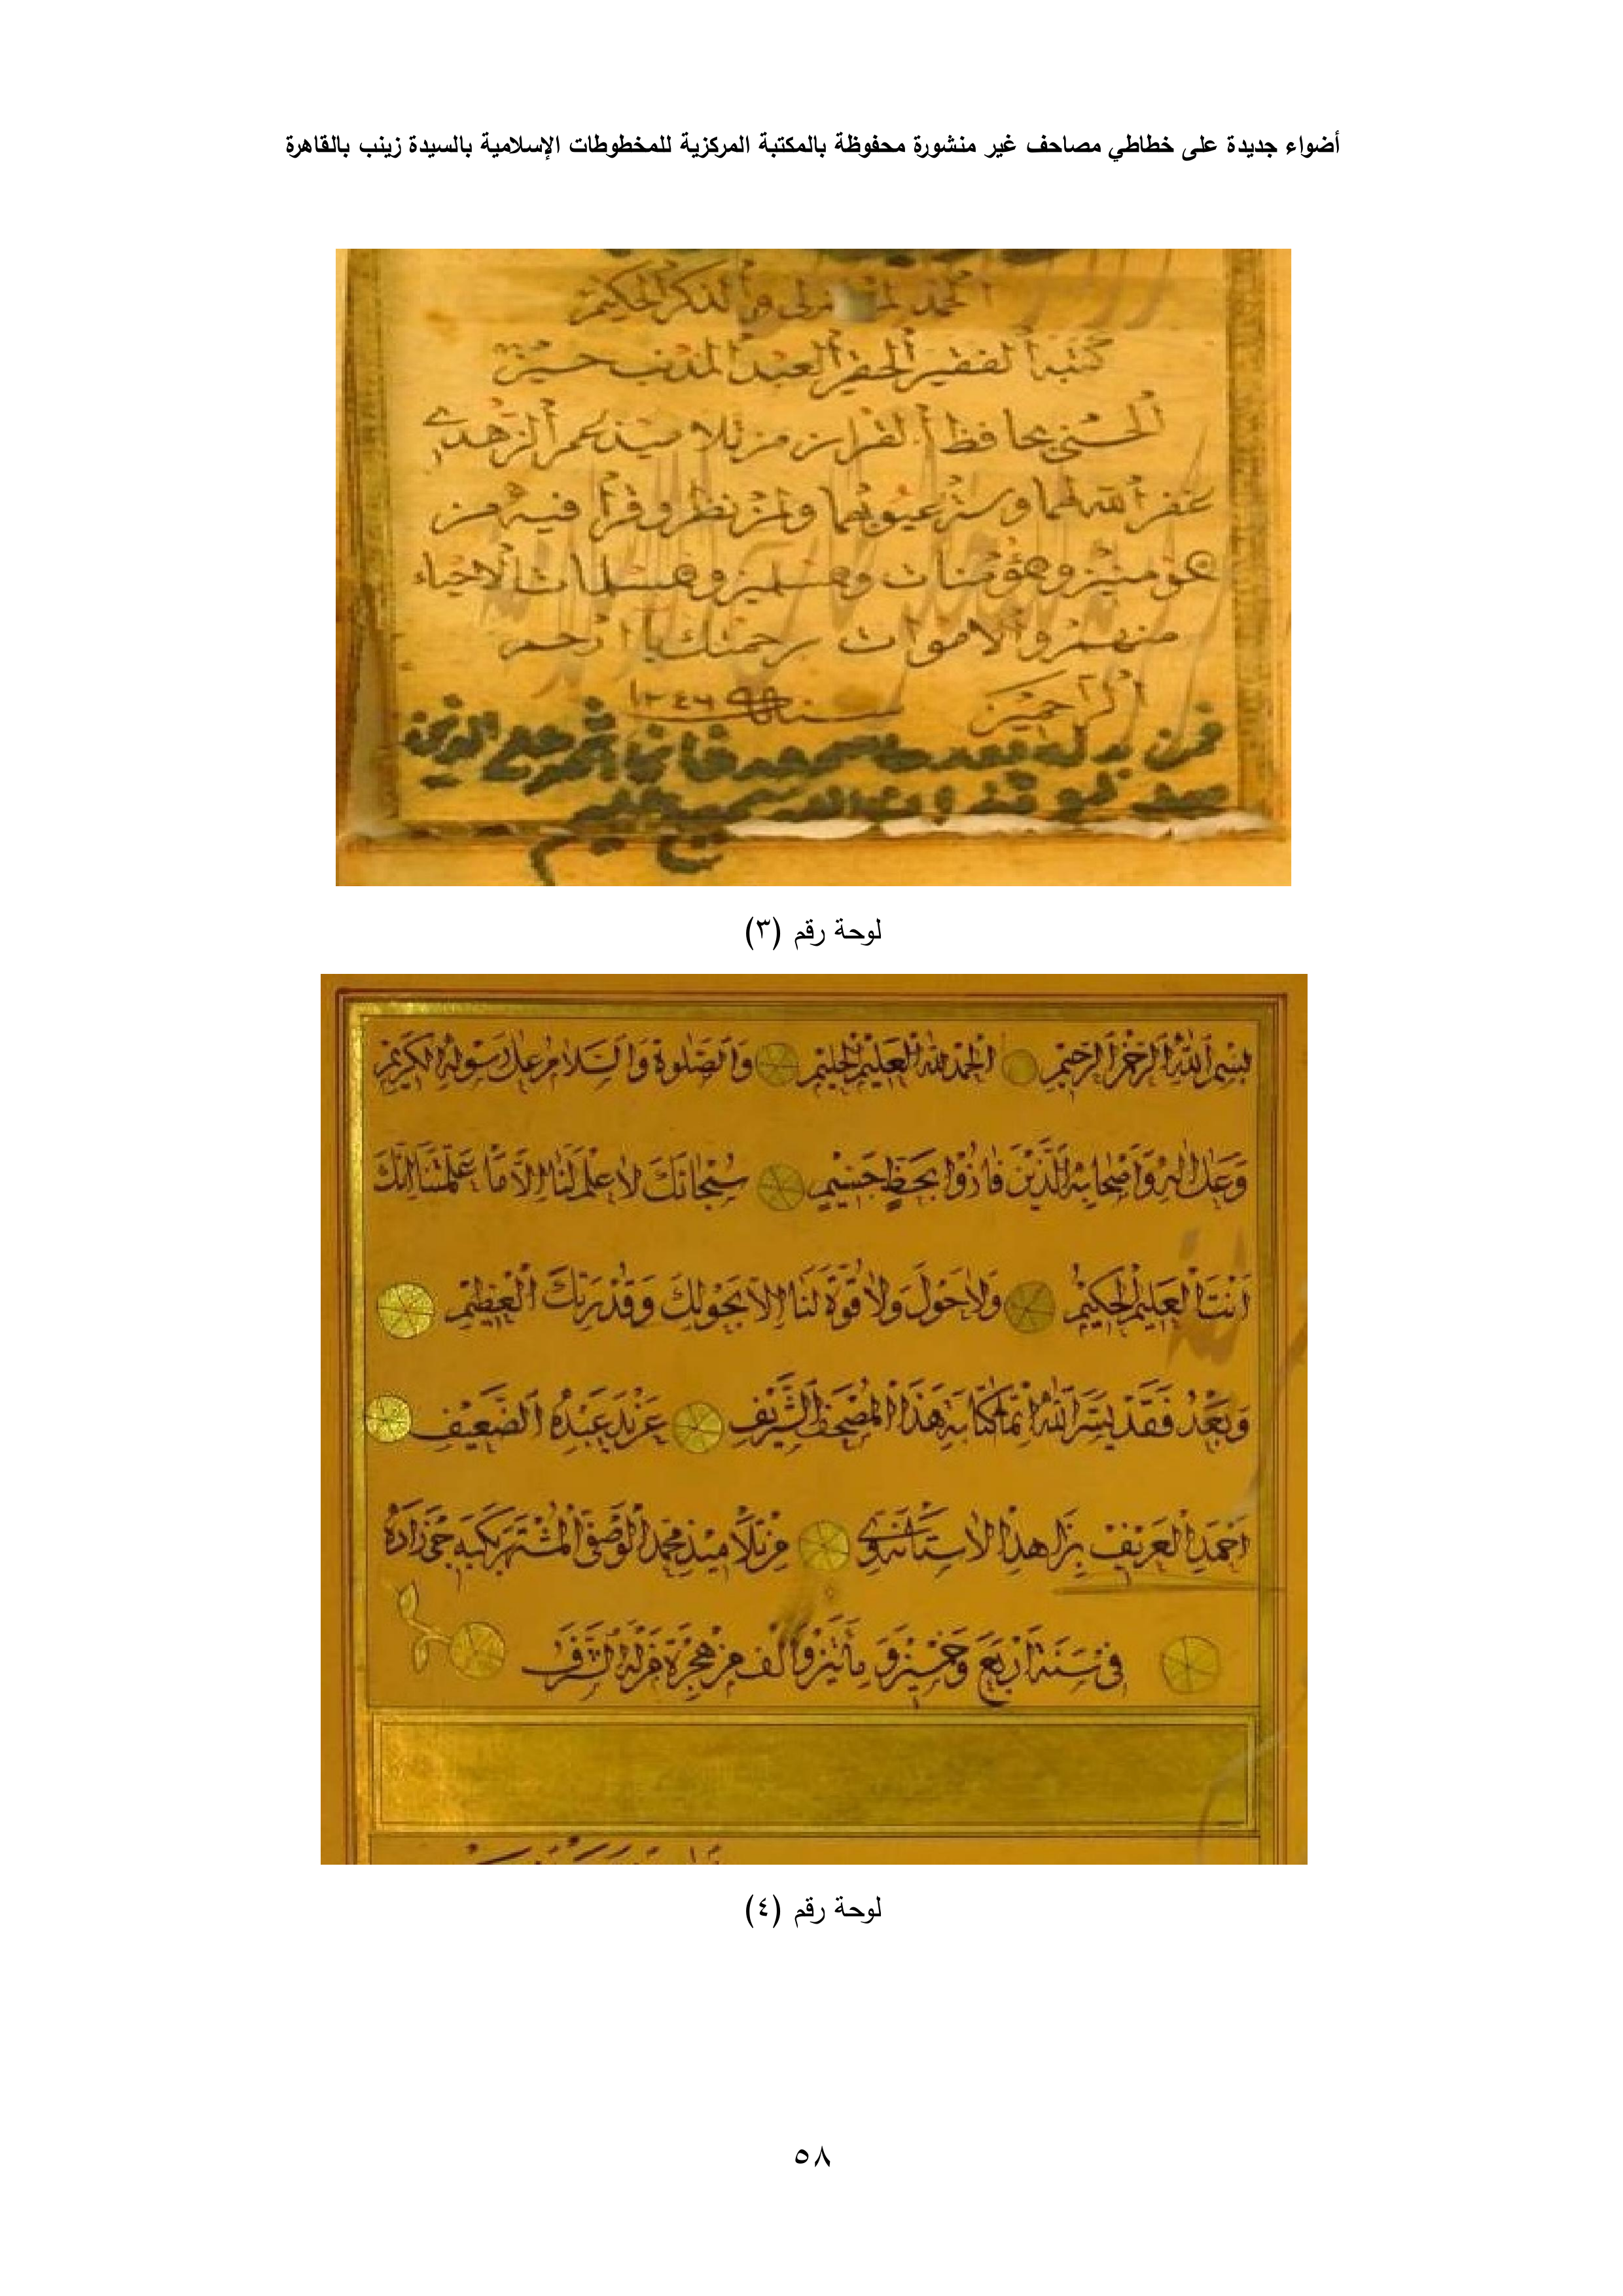 أضواء جديدة على خطاطي مصاحف غير منشورة محفوظة بالمكتبة المركزية للمخطوطات الإسلامية بالسيدة زينب بالقاهرة
الحمد والذكر الحكيم
كتبه الفقير الحقير العبد المذنب حسين
الحسني حافظ القران من تلاميذ عمر الزهدي
غفر الله لهما وستر عيوبهما ولمن نظر وقرأ فيه من
مؤمنين ومؤمنات ومسلمين ومسلمات الاحياء
منهم والاموات برحمتك يا ارحم
الراحمين سنة ١٢٤٦
فمن بدله بعد ما سمعه فإنما اثمه على الذين
يبدلونه ان الله سميع عليم
لوحة رقم (٣)
بسم الله الرحمن الرحيم الحمد لله العليم الحليم والصلوة والسلام على رسوله الكريم
وعلى اله واصحابه الذين فازوا بحظ جسيم سبحانك لا علم لنا الا ما علمتنا انك
انت العليم الحكيم ولا حول ولا قوة لنا الا بحولك وقدرتك العظيم
وبعد فقد يسر الله اتمام كتابة هذا المصحف الشريف عن يد عبده الضعيف
احمد العريف بزاهد الاستانوي من تلاميذ محمد الوصفي المشتهر بكبه جي زاده
في سنة اربع وخمسين ومأتين والف من هجرة من له الشرف
لوحة رقم (٤)
٥٨